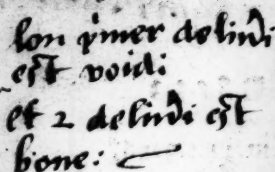 lon p'mer deliu'i
est void:
et 2 deliu'i est
bone: